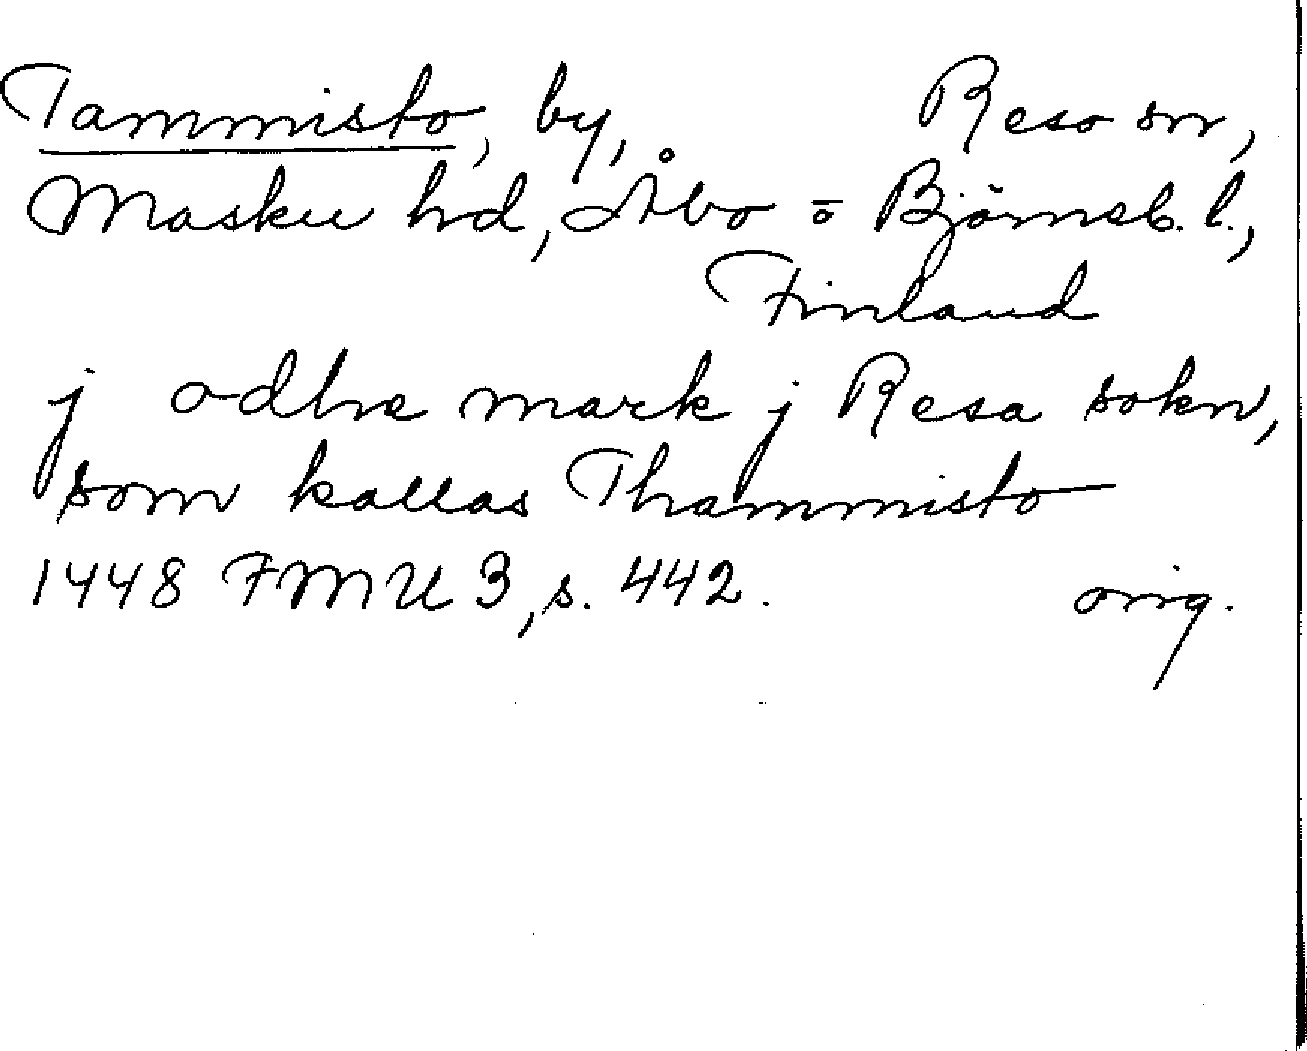 Tammisto, by, Reso sn,
Masku hd, Åbo o Björneb. l.,
Finland
j odhe mark j Resa sokn,
som kallas Thammisto
1448 FMU 3, s. 442. orig.